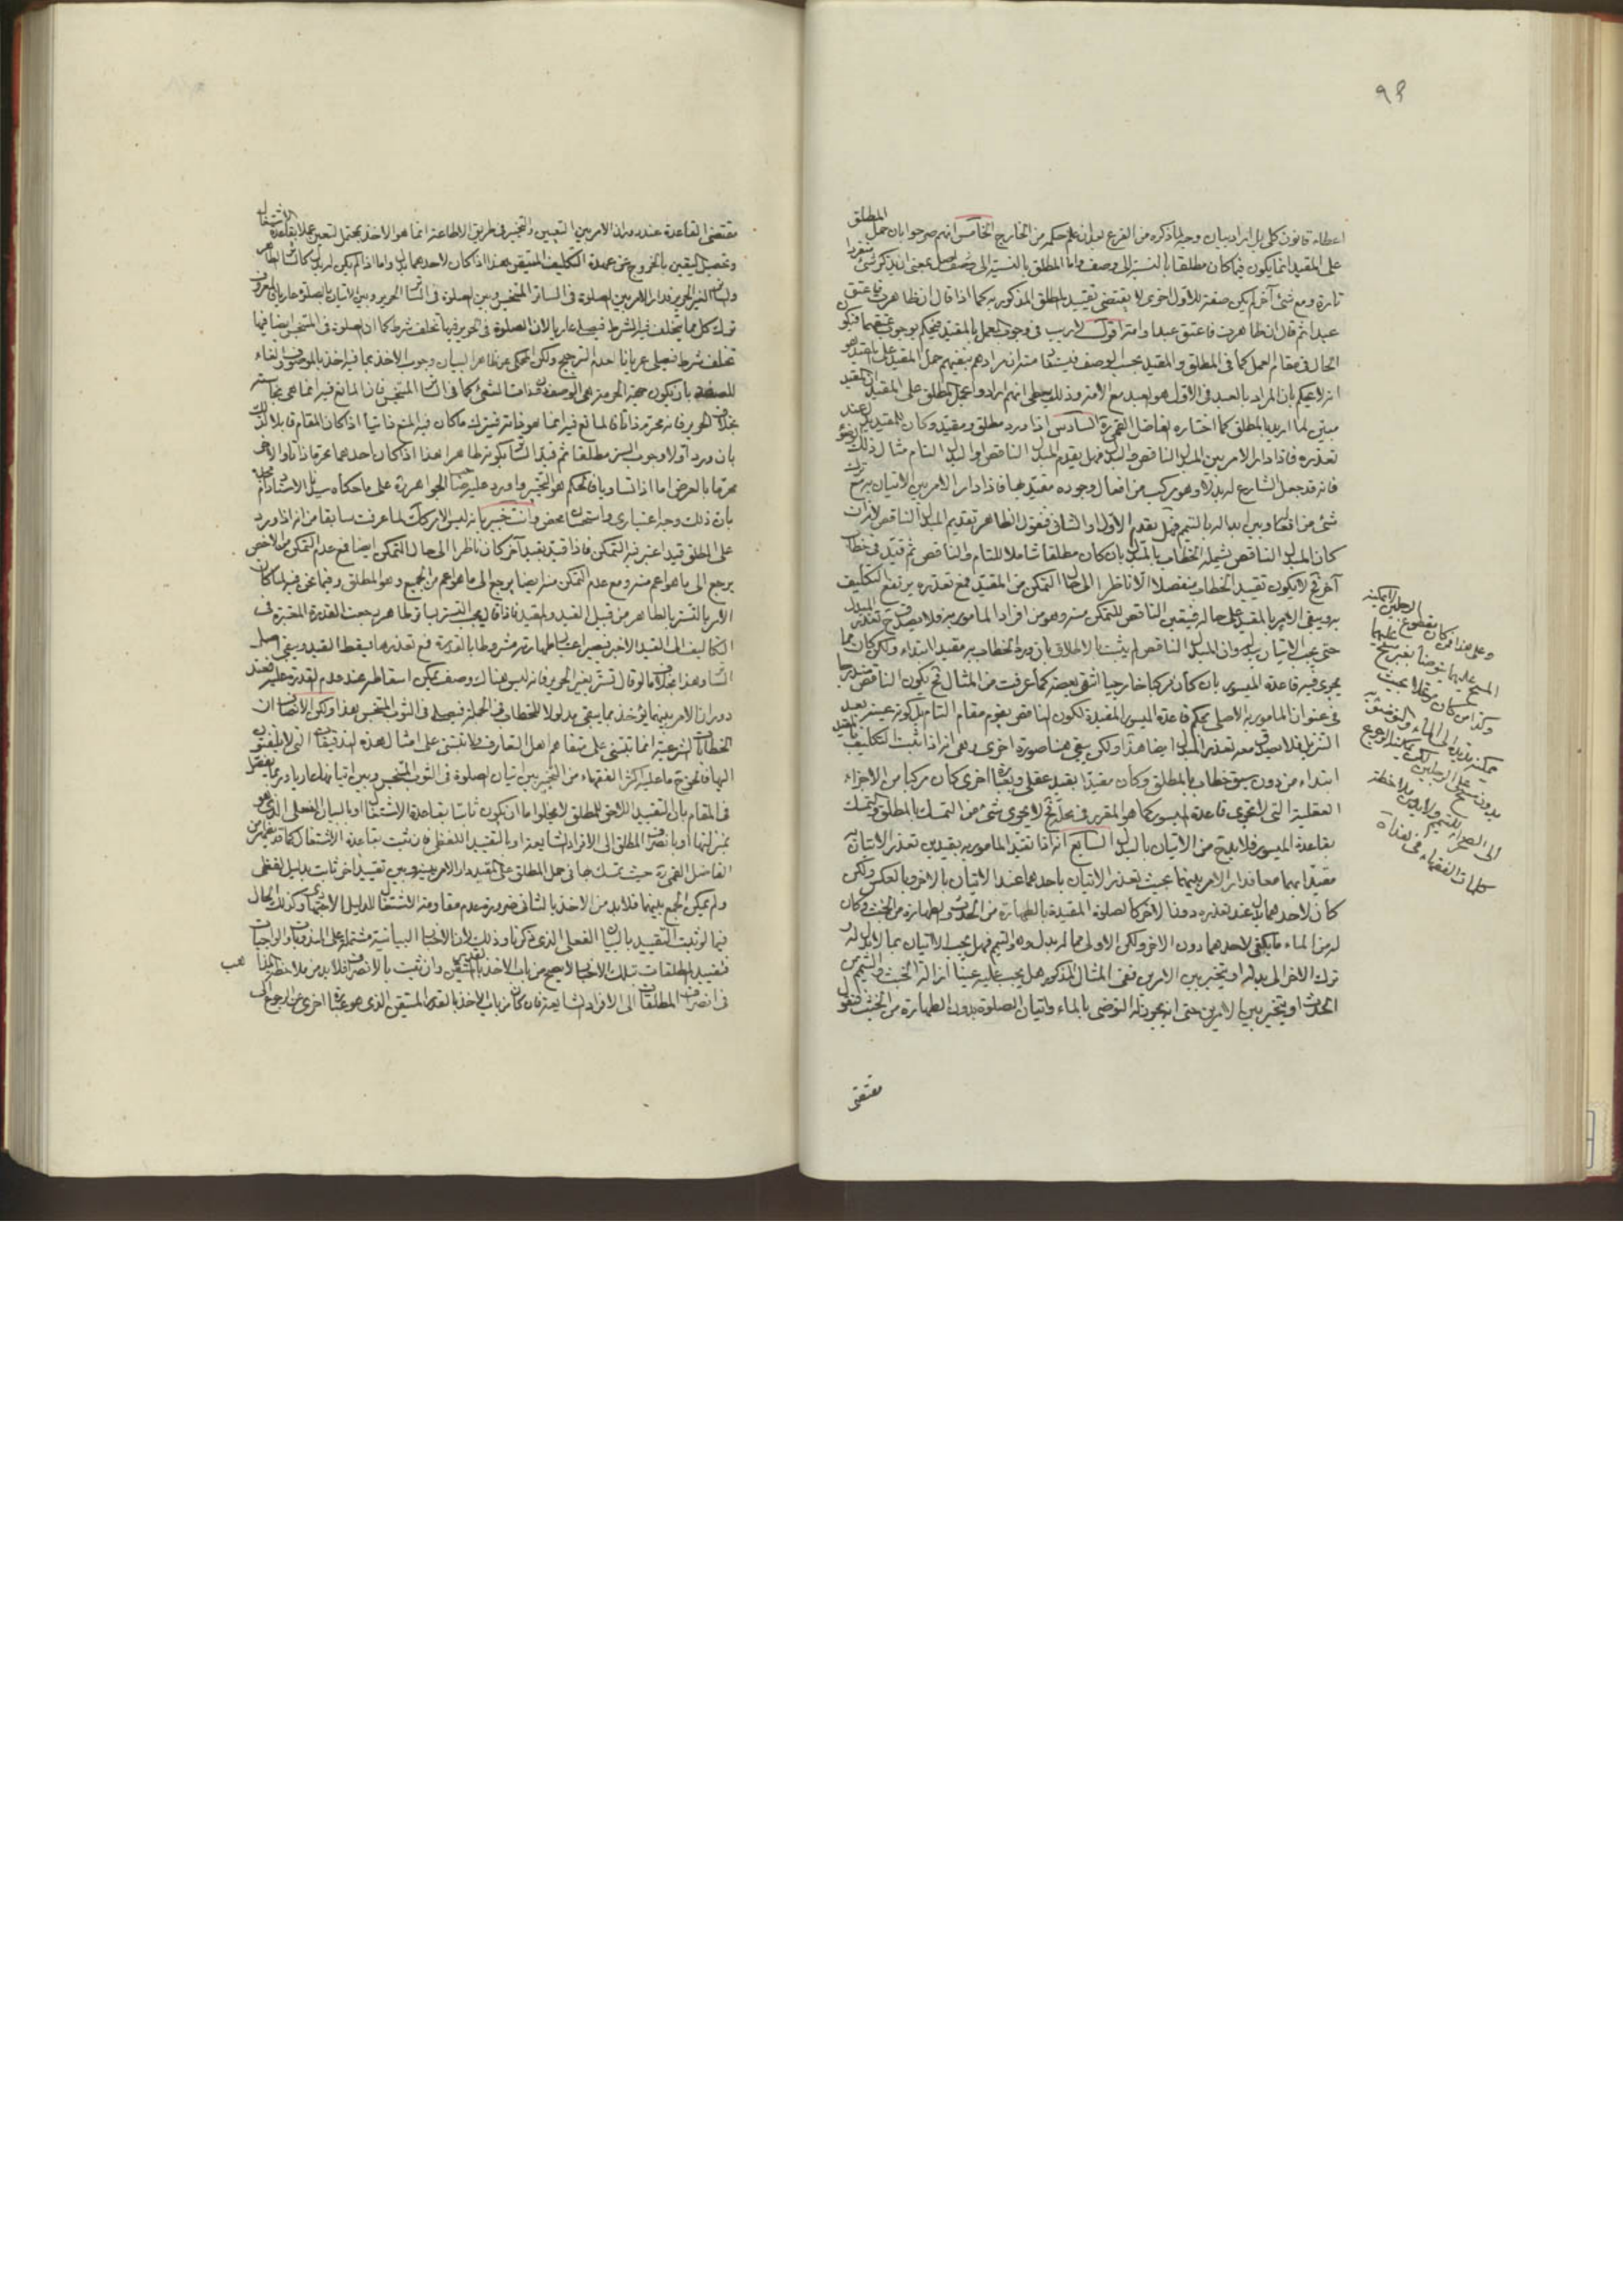 ٩٣
اعطاء قانون كلى بل اراد بيان وجه لما ذكره من الفرع بعد ان علم حكمه من الخارج الخامس انهم صرحوا بان حمل المطلق
على المقيد انما يكون فيما كان مطلقا بالنسبة الى وصف واما المطلق بالنسبة الى بمعنى ان يذكر شئ منفردا
تارة ومع شئ آخر لم يكن صفة للاول اخرى فلا يقتضى تقييد المطلق المذكور به كما اذا قال ان ظاهرت فاعتق
عبدا ثم قال ان ظاهرت فاعتق عبدا وامة اقول لا ريب فى وجوب العمل بالمقيد فيحكم بوجوب عتقهما فيكون
الحال فى مقام العمل كما فى المطلق والمقيد بحسب الوصف منه ان مرادهم بنفيهم حمل المقيد على المقيد هو
انه لا يحكم بان المراد بالعبد فى الاول هو العبد مع الامة وذلك على انهم ارادوا بحمل المطلق على المقيد ان المقيد
مبين لما اريد بالمطلق كما اختاره الفاضل القمى ره السادس اذا ورد مطلق ومقيد وكان للمقيد بدل عند
تعذره فاذا دار الامر بين المبدل الناقص والبدل فهل يقدم المبدل الناقص او البدل التام مثال ذلك الوضوء
فانه قد جعل الشارع له بدلا وهو مركب من افعال وجوده مقيد بها فاذا دار الامر بين الاتيان به مع ترك
شئ من افعاله وبين ابداله بالتيمم فهل يقدم الاول او الثانى فنقول الظاهر تقديم المبدل الناقص لانه ان
كان المبدل الناقص يشمله الخطاب بالمبدل بان كان مطلقا شاملا للتام والناقص ثم قيد فى خطاب
آخر فح لا يكون تقييد الخطاب منفصلا الا ناظرا الى حال التمكن من المقيد فمع تعذره يرتفع التكليف
به ويبقى الامر بالمقيد على حاله فيتعين الناقص للتمكن منه وهو من افراد المامور به فلا يصدق ح تعذر المبدل
حتى يجب الاتيان ببدله وان المبدل الناقص لم يثبت بالاطلاق بان ورد الخطاب به مقيد ابتداء ولكن كان مما
يجرى فيه قاعدة الميسور بان كان مركبا خارجيا انتفى بعضه كما عرفت من المثال فح يكون الناقص مندرجا
فى عنوان المامور به الاصلى بحكم قاعدة الميسور المفيدة لكون الناقص يقوم مقام التام بل كونه عينه بعد
التنزيل فلا يصدق معه تعذر المبدل ايضا هذا ولكن يبقى هنا صورة اخرى وهى انه اذا ثبت التكليف بالمقيد
ابتداء من دون سبق خطاب بالمطلق وكان مقيدا بقيد عقلى وبعبارة اخرى كان مركبا من الاجزاء
العقلية التى لا تجرى قاعدة الميسور كما هو المقرر فى محله فح لا يجرى شئ من التمسك بالمطلق والتمسك
بقاعدة الميسور فلا بد ح من الاتيان بالبدل السابع انه اذا تقيد المامور به بقيدين تعذر الاتيان به
مقيدا بهما معا فدار الامر بينهما بحيث تعذر الاتيان باحدهما عند الاتيان بالاخر وبالعكس ولكن
كان لاحدهما بدل عند تعذره دون الاخر كالصلوة المقيدة بالطهارة من الحدث والطهارة من الخبث وكان
له من الماء ما يكفى لاحدهما دون الاخر ولكن الاولى مما له بدل وهو التيمم فهل يجب الاتيان بما لا بدل له و
ترك الاخر الى بدله او يتخير بين الامرين ففى المثال المذكور هل يجب عليه عينا ازالة الخبث والتيمم من
الحدث او يتخير بين الامرين حتى انه يجوز له التوضى بالماء واتيان الصلوة بدون الطهارة من الخبث فنقول
مقتضى
وعلى هذا فمن كان مقطوع الرجلين لا يمكنه
المسح عليهما يتوضأ بغير مسح عليهما
وكذا من كان رجلاه بحيث
يمكنه الى الماء والتوضى به
بدون مسح على الرجلين لكن يمكنه الرجوع
الى التيمم ولا بد من ملاحظة
كلمات الفقهاء فى هذا
مقتضى القاعدة عند دوران الامر بين التعيين والتخيير فى طريق الاطاعة انما هو الاخذ بمحتمل التعيين عملا بقاعدة الاشتغال
وتحصيل اليقين بالخروج عن عهدة التكليف المتيقن هذا اذا كان لاحدهما بدل واما اذا لم يكن له بدل كالساتر الطاهر
والساتر الغير الحرير فدار الامر بين الصلوة فى الساتر المتنجس وبين الصلوة فى الساتر الحرير وبين الاتيان بالصلوة عاريا
ترك كل مما يتخلف فيه الشرط فيصلى عاريا لان الصلوة فى الحرير فيها تخلف شرط كما ان الصلوة فى المتنجس ايضا فيها
تخلف شرط فيصلى عريانا لعدم الترجيح ولكن المحكى عن ظاهر البيان وجوب الاخذ بما فيه اخذ بالموصوف والغاء
للصفة بان يكون جهة الحرمة هى الوصف لا ذات الشئ كما فى الساتر المتنجس فان المانع فيه انما هى نجاسته
بخلاف الحرير فانه محرم ذاتا فالمانع فيه انما هو ذاته فيترك ما كان فيه المنع ذاتيا اذا كان المقام قابلا لذلك
بان ورد اولا وجوب الستر مطلقا ثم قيد الساتر بكونه طاهرا هذا اذا كان احدهما محرما ذاتا والاخر
محرما بالعرض اما اذا تساويا فالحكم هو التخيير واورد عليه صاحب الجواهر ره على ما حكاه سيدنا الاستاد دام ظله
بان ذلك وجه اعتبارى واستحسان محض وانت خبير بانه ليس الامر كذلك لما عرفت سابقا من انه اذا ورد
على المطلق قيد اعتبر فيه التمكن فاذا قيد بقيد آخر كان ناظرا الى حال التمكن ايضا فمع عدم التمكن من الاخص
يرجع الى ما هو اعم منه ومع عدم التمكن منه ايضا يرجع الى ما هو اعم من الجميع وهو المطلق وفيما نحن فيه لما كان
الامر بالتستر بالطاهر من قبيل القيد والمقيد فاذا قال يجب التستر بساتر طاهر رجعت القدرة المعتبرة فى
التكاليف الى القيد الاخير فيصير اعتبار طهارته مشروطا بالقدرة فمع تعذرها يسقط القيد ويبقى اصل
الساتر وهذا بخلاف ما لو قال تستر بغير الحرير فانه ليس هناك وصف يمكن اسقاطه عند عدم القدرة عليه فعند
دوران الامر بينهما يؤخذ بما يبقى مدلولا للخطاب فى الجملة فيصلى فى الثوب المتنجس هذا ولكن الانصاف ان
الخطابات الشرعية انما تبتنى على متفاهم اهل التعارف ولا تبتنى على امثال هذه التدقيقات التى لا يلتفتون
اليها فالمخرج ما عليه اكثر الفقهاء من التخيير بين اتيان الصلوة فى الثوب المتنجس وبين اتيانها عاريا وربما يفصل
فى المقام بان التقييد اللاحق للمطلق لا يخلو اما ان يكون ثابتا بقاعدة الاشتغال او بالبيان الفعلى الذى هو
بمنزلتها او بانصراف المطلق الى الافراد الشايعة او بالتقييد اللفظى فان ثبت بقاعدة الاشتغال كما تقدم من
الفاضل القمى ره حيث تمسك بها فى حمل المطلق على المقيد ودار الامر بينه وبين تقييد آخر ثابت بدليل لفظى
ولم يمكن الجمع بينهما فلا بد من الاخذ بالثانى ضرورة عدم مقاومة الاشتغال للدليل الاجتهادى وكذلك الحال
فيما لو ثبت التقييد بالبيان الفعلى الذى ذكرنا وذلك لان الاخبار البيانية مشتملة على المندوبات والواجبات
فتقييد المطلقات بتلك الاخبار لا يصح من باب الاخذ بالقدر المتيقن وان ثبت بالانصراف فلا بد من ملاحظة
فى انصراف المطلقات الى الافراد الشايعة فان كان من باب الاخذ بالقدر المتيقن الذى هو عبارة اخرى عن الرجوع الى